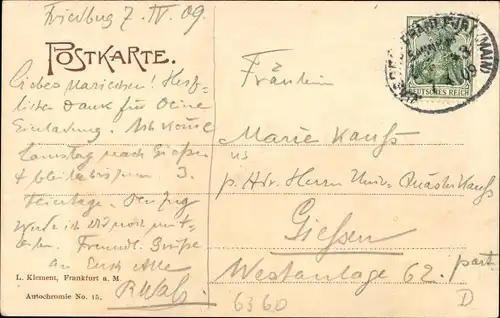 Friedberg 7. IV. 09.
POSTKARTE.
Liebes Mariechen! Herz-
lichen Dank für Deine
Einladung. Ich komme
Samstag nach Gießen
& bleibe bis zum 3.
Feiertage. Den Zug
werde ich Dir noch mit-
teilen. Freundl. Grüße
an Euch Alle
L. Klement, Frankfurt a. M.
Autochromie No. 15.
FRANKFURT (MAIN)
DEUTSCHES REICH
Fräulein
Marie Kauß
p. Adr. Herrn Univ. Quästor Kauß
Giessen
Westanlage 62. part
6360
D